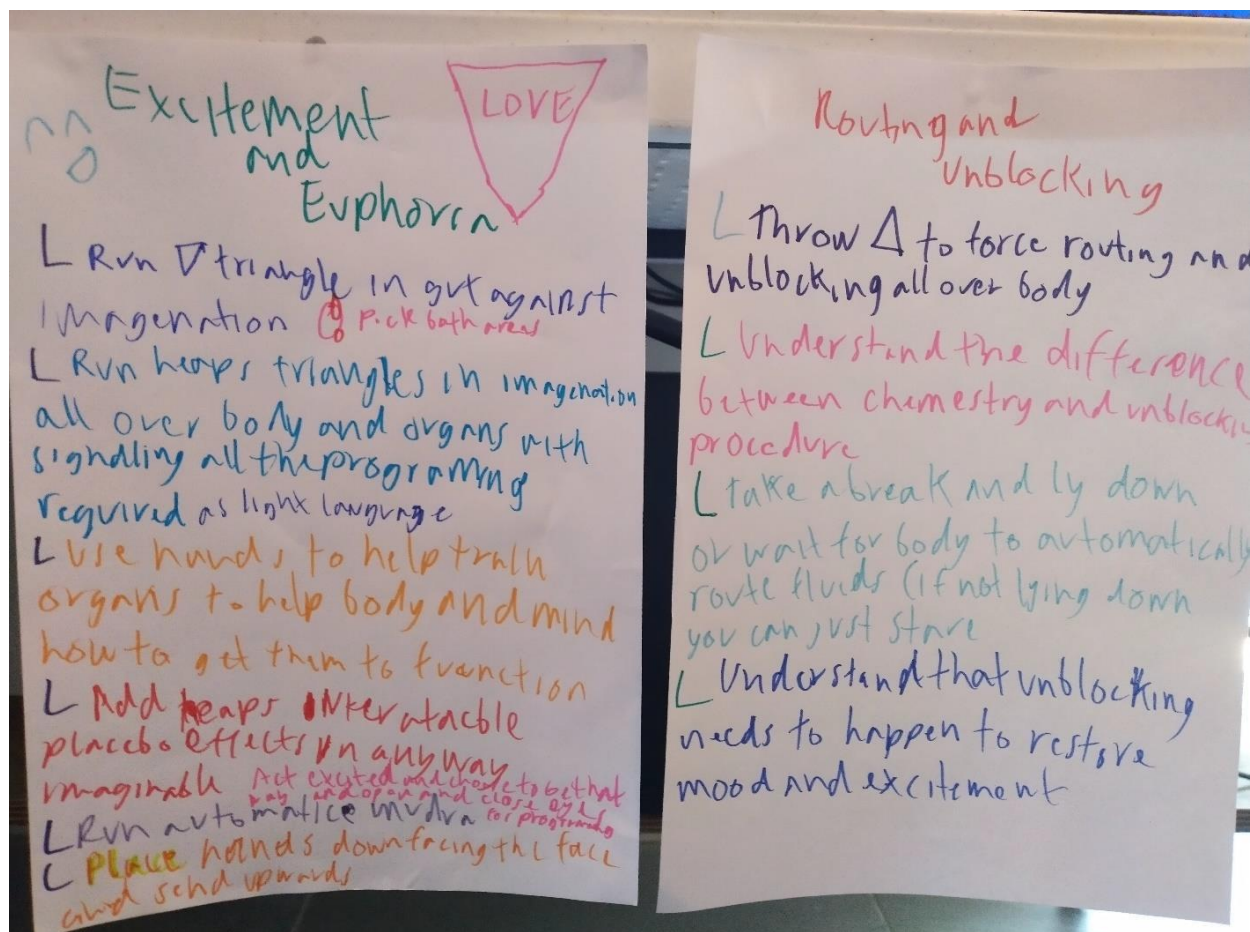 Excitement
and
Euphoria
LOVE
L Run ▽ triangle in gut against
Imagenation pick both areas
L Run heaps triangles in imagenation
all over body and organs with
signalling all the programing
required as light language
L Use hands to help train
organs to help body and mind
how to get them to function
L Add heaps
placebo effects in anyway
imaginable Act excited and chose to be that
way and open and close eyes
L Run automatice mudra for programing
L Place hands down facing the face
and send upwards
Routing and
Unblocking
L Throw △ to force routing and
unblocking all over body
L Understand the difference
between chemestry and unblocking
procedure
L take a break and ly down
or wait for body to automatically
route fluids (if not lying down
you can just stare
L Understand that unblocking
needs to happen to restore
mood and excitement